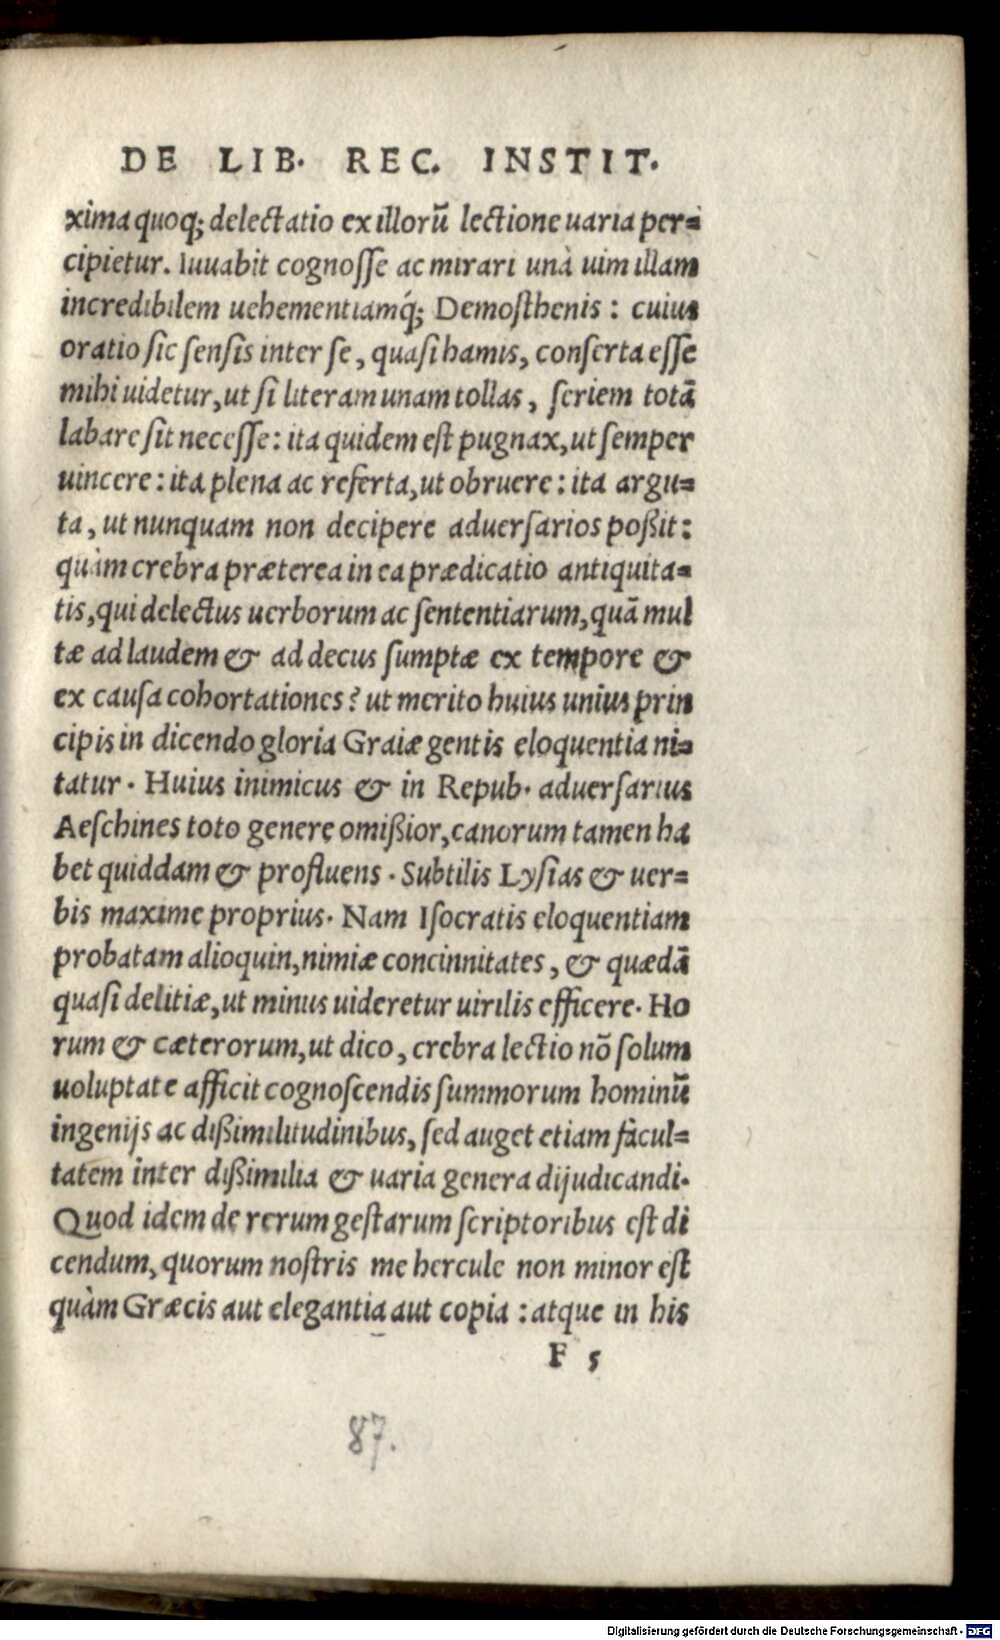 DE LIB. REC. INSTIT.
xima quoq; delectatio ex illorũ lectione uaria per=
cipietur. Iuuabit cognosse ac mirari unà uim illam
incredibilem uehementiamq́; Demosthenis : cuius
oratio sic sensis inter se, quasi hamis, conserta esse
mihi uidetur, ut si literam unam tollas, seriem totã
labare sit necesse : ita quidem est pugnax, ut semper
uincere : ita plena ac referta, ut obruere : ita argu=
ta, ut nunquam non decipere aduersarios poßit :
quàm crebra præterea in ea prædicatio antiquita=
tis, qui delectus uerborum ac sententiarum, quã mul
tæ ad laudem & ad decus sumptæ ex tempore &
ex causa cohortationes? ut merito huius unius prin
cipis in dicendo gloria Graiæ gentis eloquentia ni=
tatur. Huius inimicus & in Repub. aduersarius
Aeschines toto genere omißior, canorum tamen ha
bet quiddam & profluens. Subtilis Lysias & uer=
bis maxime proprius. Nam Isocratis eloquentiam
probatam alioquin, nimiæ concinnitates, & quædã
quasi delitiæ, ut minus uideretur uirilis efficere. Ho
rum & cæterorum, ut dico, crebra lectio nõ solum
uoluptate afficit cognoscendis summorum hominũ
ingenijs ac dißimilitudinibus, sed auget etiam facul=
tatem inter dißimilia & uaria genera dijudicandi.
Quod idem de rerum gestarum scriptoribus est di
cendum, quorum nostris me hercule non minor est
quàm Græcis aut elegantia aut copia : atque in his
F 5
87.
Digitalisierung gefördert durch die Deutsche Forschungsgemeinschaft - DFG